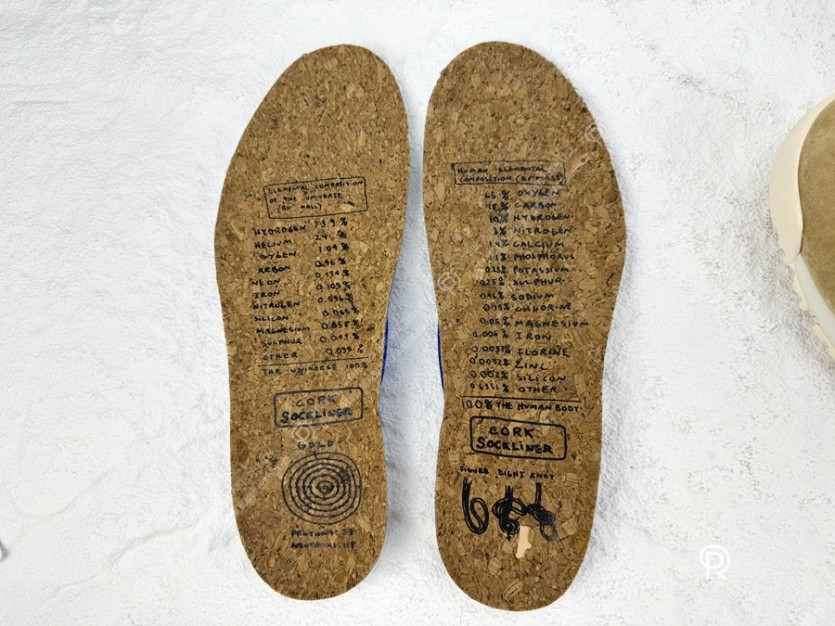 ELEMENTAL COMPOSITION
OF THE UNIVERSE
(BY MASS)
HYDROGEN 73.9%
HELIUM 24.%
OXYGEN 1.04%
CARBON 0.46%
NEON 0.134%
IRON 0.109%
NITROGEN 0.096%
SILICON 0.065%
MAGNESIUM 0.058%
SULPHUR 0.044%
OTHER 0.095%
THE UNIVERSE 100%
CORK
SOCKLINER
GOLD
PROTONS: 79
NEUTRONS: 118
HUMAN ELEMENTAL
COMPOSITION (BY MASS)
65% OXYGEN
18% CARBON
10% HYDROGEN
3% NITROGEN
1.4% CALCIUM
1.1% PHOSPHORUS
0.25% POTASSIUM
0.25% SULPHUR
SODIUM
CHLORINE
0.05% MAGNESIUM
0.006% IRON
0.0037% FLORINE
0.0032% ZINC
0.002% SILICON
OTHER
100% THE HUMAN BODY.
CORK
SOCKLINER
FIGURE EIGHT KNOT